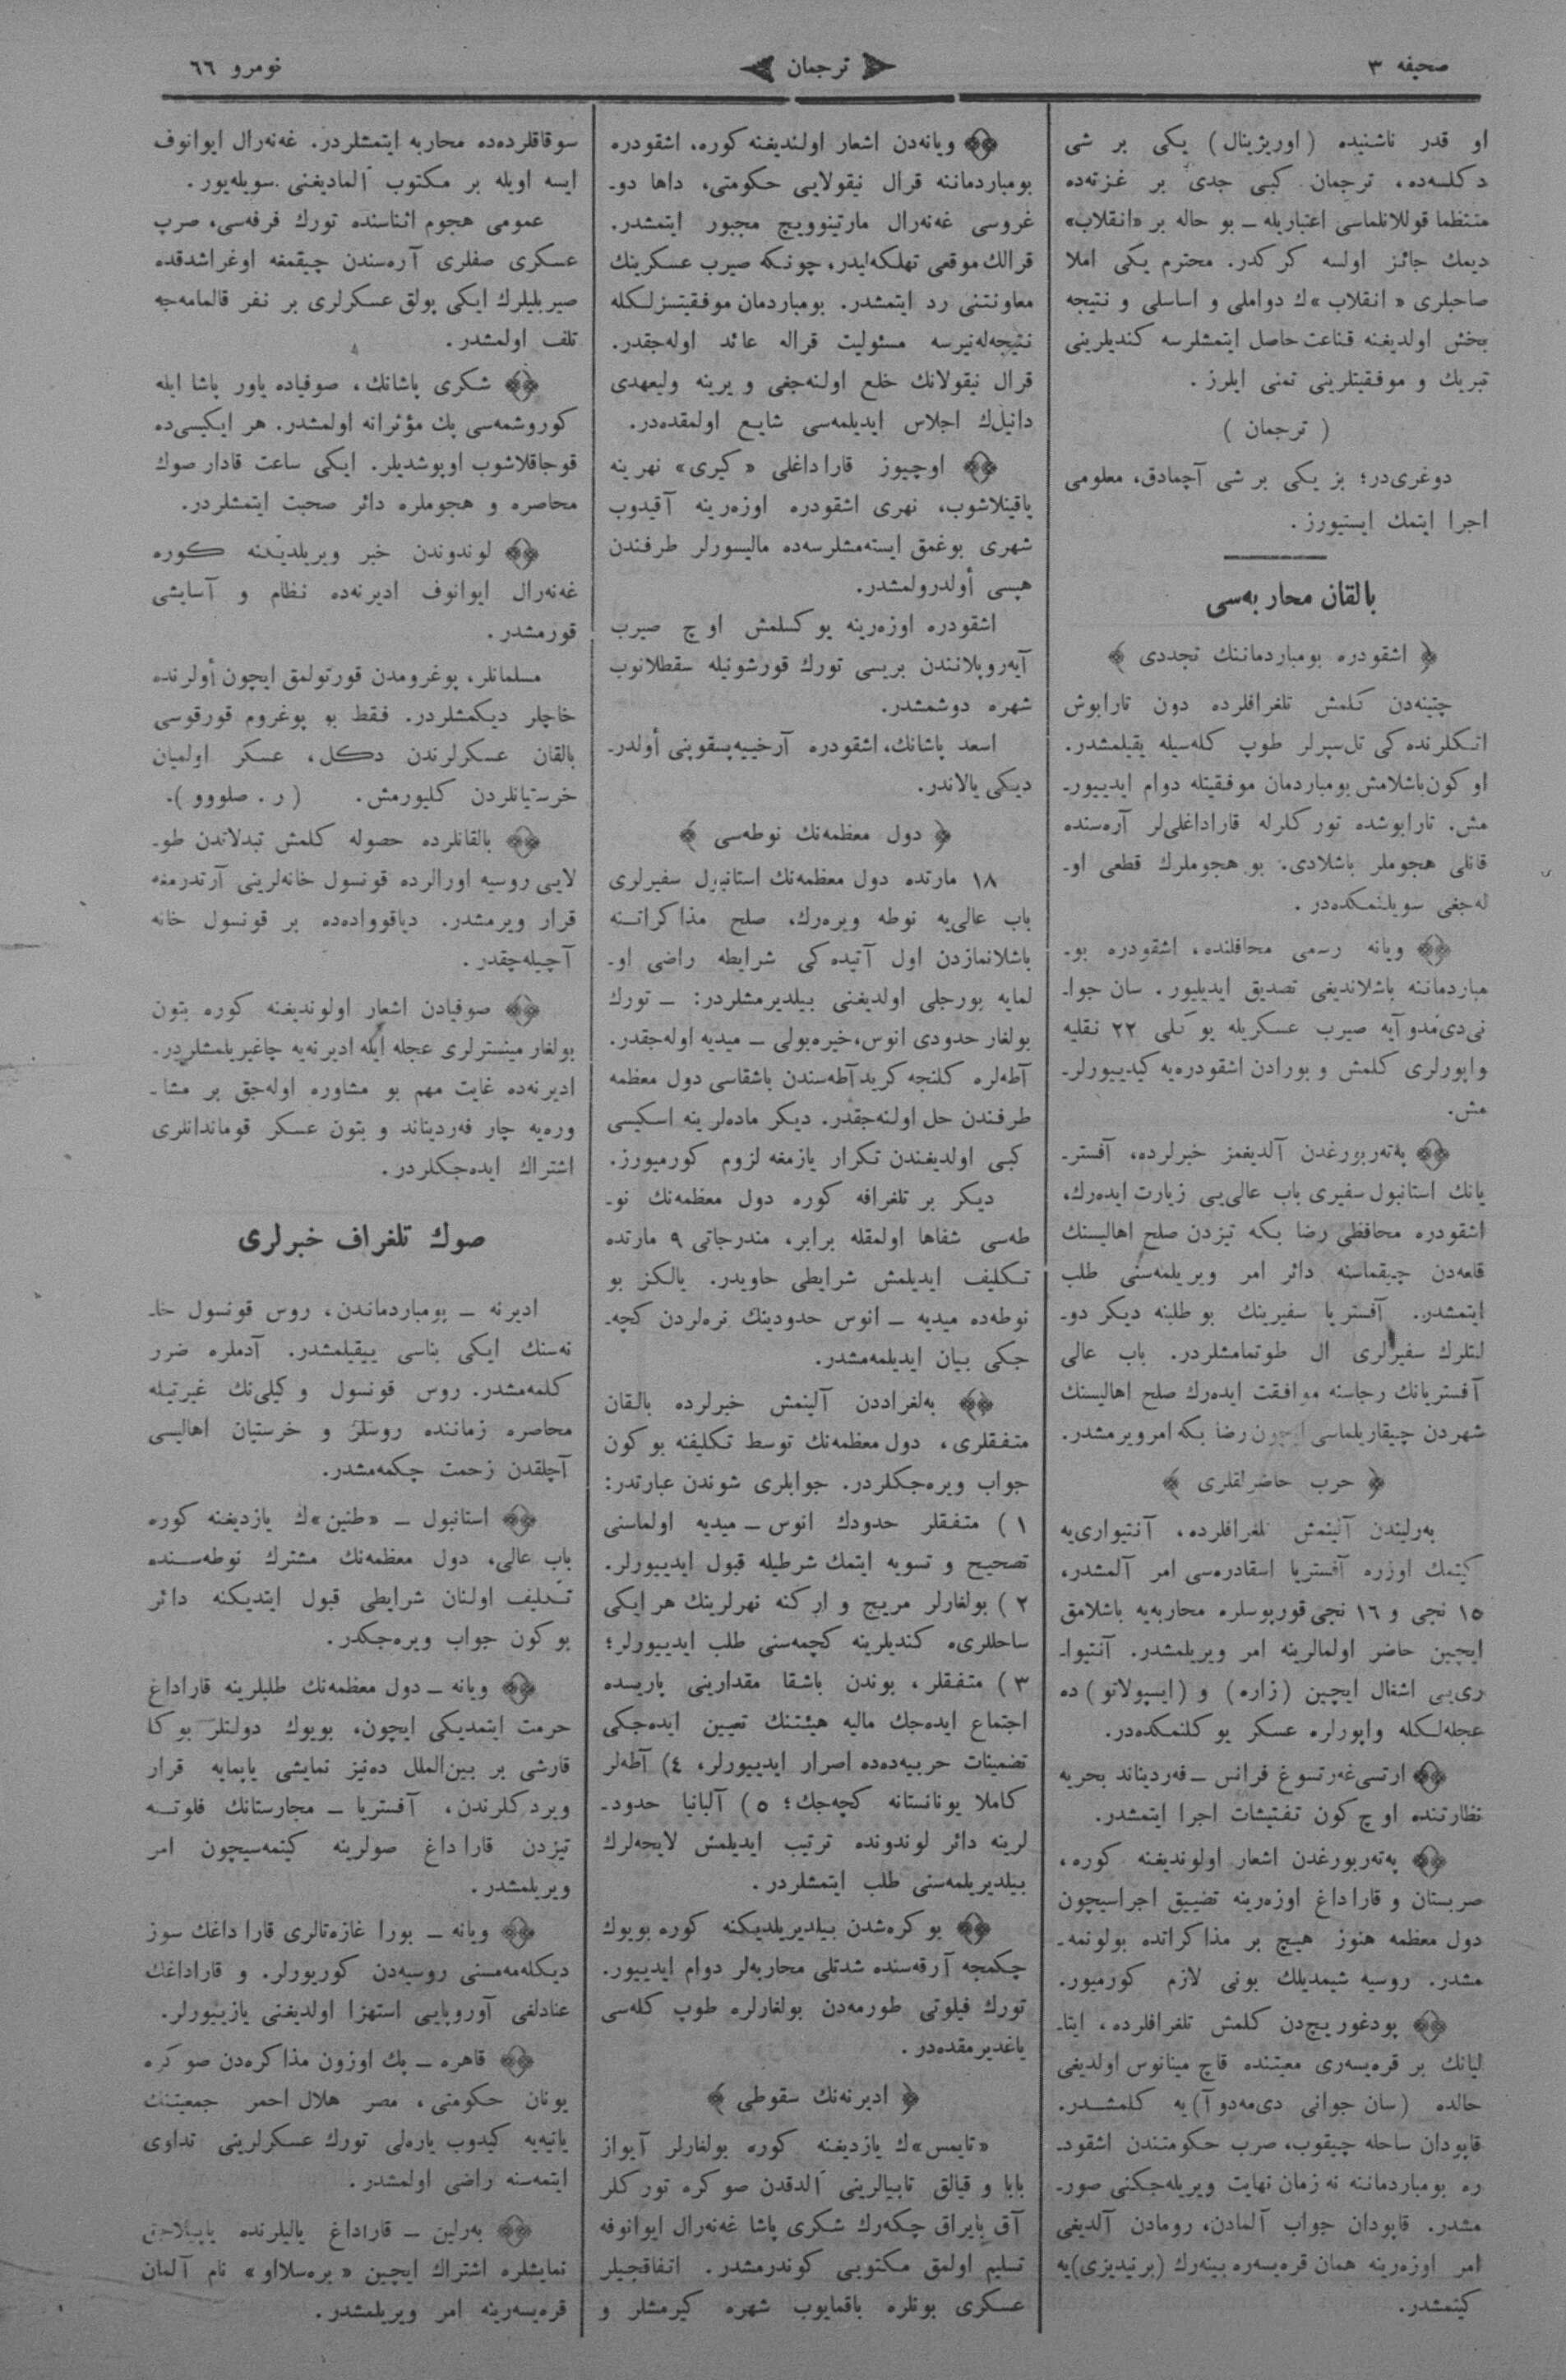 صحیفه ۳
ترجمان
نومرو ٦٦
او قدر ناشنیده (اوریژینال) یکی بر شی
دکلسه‌ده، ترجمان کبی جدی بر غزته‌ده
منتظما قوللانلماسی اعتباریله ــ بو حاله بر «انقلاب»
دیمك جائز اولسه کرکدر. محترم یکی املا
صاحبلری «انقلاب»ك دواملی و اساسلی و نتیجه
بخش اولدیغنه قناعت حاصل ایتمشلرسه کندیلرینی
تبریك و موفقیتلرینی تمنی ایلرز.
( ترجمان )
دوغری‌در؛ بز یکی بر شی آچمادق، معلومی
اجرا ایتمك ایستیورز.
بالقان محاربه‌سی
﴿ اشقودره بومباردماننك تجددی ﴾
چتینه‌دن کلمش تلغرافلرده دون تارابوش
اتکلرنده‌کی تل‌سپرلر طوپ کله‌سیله یقیلمشدر.
او کون‌باشلامش بومباردمان موفقیتله دوام ایدییور-
مش. تارابوشده تورکلرله قاراداغلی‌لر آره‌سنده
قانلی هجوملر باشلادی. بو هجوملرك قطعی او-
له‌جغی سویلنمکده‌در.
ویانه رسمی محافلنده، اشقودره بو-
مباردماننه باشلاندیغی تصدیق ایدیلیور. سان جوا-
نی‌دی‌مدوآیه صیرب عسکریله یوکلی ٢٢ نقلیه
واپورلری کلمش و بورادن اشقودره‌یه کیدییورلر-
مش.
په‌ته‌ربورغدن آلدیغمز خبرلرده، آفستر-
یانك استانبول سفیری باب عالی‌یی زیارت ایده‌رك،
اشقودره محافظی رضا بکه تیزدن صلح اهالیسنك
قلعه‌دن چیقماسنه دائر امر ویریلمه‌سنی طلب
ایتمشدر. آفستریا سفیرینك بو طلبنه دیکر دو-
لتلرك سفیرلری ال طوتمامشلردر. باب عالی
آفستریانك رجاسنه موافقت ایده‌رك صلح اهالیسنك
شهردن چیقاریلماسی ایچون رضا بکه امرویرمشدر.
﴿ حرب حاضرلقلری ﴾
به‌رلیندن آلینمش تلغرافلرده، آنتیواری‌یه
کیتمك اوزره آفستریا اسقادره‌سی امر آلمشدر،
١٥ نجی و ١٦ نجی قورپوسلره محاربه‌یه باشلامق
ایچین حاضر اولمالرینه امر ویریلمشدر. آنتیوا-
ری‌یی اشغال ایچین (زاره) و (ایسپولاتو)ده
عجله‌لکله واپورلره عسکر یوکلنمکده‌در.
ارتسی‌غه‌رتسوغ فرانس ــ فه‌ردیناند بحریه
نظارتنده اوچ کون تفتیشات اجرا ایتمشدر.
په‌ته‌ربورغدن اشعار اولوندیغنه کوره،
صربستان و قاراداغ اوزه‌رینه تضییق اجراسیچون
دول معظمه هنوز هیچ بر مذاکراتده بولونمه-
مشدر. روسیه شیمدیلك بونی لازم کورمیور.
پودغوریچه‌دن کلمش تلغرافلرده، ایتا-
لیانك بر قره‌یسه‌ری معیتنده قاچ مینانوس اولدیغی
حالده (سان جوانی دی‌مه‌دوآ)یه کلمشـدر.
قاپودان ساحله چیقوب، صرب حکومتندن اشقود-
ره بومباردماننه نه زمان نهایت ویریله‌جکنی صور-
مشدر. قاپودان جواب آلمادن، رومادن آلدیغی
امر اوزه‌رینه همان قره‌یسه‌ره بینه‌رك (برنیدیزی)یه
کیتمشدر.
ویانه‌دن اشعار اولندیغنه کوره، اشقودره
بومباردماننه قرال نیقولایی حکومتی، داها دو-
غروسی غه‌نه‌رال مارتینوویچ مجبور ایتمشدر.
قرالك موقعی تهلکه‌لیدر، چونکه صیرب عسکرینك
معاونتنی رد ایتمشدر. بومباردمان موفقیتسزلکله
نتیجه‌له‌نیرسه مسئولیت قراله عائد اوله‌جقدر.
قرال نیقولانك خلع اولنه‌جغی و یرینه ولیعهدی
دانیلك اجلاس ایدیلمه‌سی شایع اولمقده‌در.
اوچیوز قاراداغلی «کیری» نهرینه
یاقینلاشوب، نهری اشقودره اوزه‌رینه آقیدوب
شهری بوغمق ایسته‌مشلرسه‌ده مالیسورلر طرفندن
هپسی أولدرولمشدر.
اشقودره اوزه‌رینه یوکسلمش اوچ صیرب
آیه‌روپلانندن بریسی تورك قورشونیله سقطلانوب
شهره دوشمشدر.
اسعد پاشانك، اشقودره آرخییه‌پسقوپنی أولدر-
دیکی یالاندر.
﴿ دول معظمه‌نك نوطه‌سی ﴾
١٨ مارتده دول معظمه‌نك استانبول سفیرلری
باب عالی‌یه نوطه ویره‌رك، صلح مذاکراتـنه
باشلانمازدن اول آتیده‌کی شرایطه راضی او-
لمایه بورجلی اولدیغنی بیلدیرمشلردر: ــ تورك
بولغار حدودی انوس، خیره‌بولی ــ میدیه اوله‌جقدر.
آطه‌لره کلنجه کرید آطه‌سندن باشقاسی دول معظمه
طرفندن حل اولنه‌جقدر. دیکر ماده‌لرینه اسکیسی
کبی اولدیغندن تکرار یازمغه لزوم کورمیورز.
دیکر بر تلغرافه کوره دول معظمه‌نك نو-
طه‌سی شفاها اولمقله برابر، مندرجاتی ٩ مارتده
تکلیف ایدیلمش شرایطی حاویدر. یالکز بو
نوطه‌ده میدیه ــ انوس حدودینك نره‌لردن کچه-
جکی بیان ایدیلمه‌مشدر.
به‌لغراددن آلینمش خبرلرده بالقان
متفقلری، دول معظمه‌نك توسط تکلیفنه بو کون
جواب ویره‌جکلردر. جوابلری شوندن عبارتدر:
١) متفقلر حدودك انوس ــ میدیه اولماسنی
تصحیح و تسویه ایتمك شرطیله قبول ایدییورلر.
٢) بولغارلر مریج و ارکنه نهرلرینك هر ایکی
ساحللری‌ه کندیلرینه کچمه‌سنی طلب ایدییورلر؛
٣) متفقلر، بوندن باشقا مقدارینی پاریسده
اجتماع ایده‌جك مالیه هیئتنك تعیین ایده‌جکی
تضمینات حربیه‌ده‌ده اصرار ایدییورلر، ٤) آطه‌لر
کاملا یونانستانه کچه‌جك؛ ٥) آلبانیا حدود-
لرینه دائر لوندونده ترتیب ایدیلمش لایحه‌لرك
بیلدیریلمه‌سنی طلب ایتمشلردر.
بوکره‌شدن بیلدیریلدیکنه کوره بویوك
چکمجه آرقه‌سنده شدتلی محاربه‌لر دوام ایدییور.
تورك فیلوتی طورمه‌دن بولغارلره طوپ کله‌سی
یاغدیرمقده‌در.
﴿ ادیرنه‌نك سقوطی ﴾
«تایمس»ك یازدیغنه کوره بولغارلر آیواز
بابا و قیالق تابیالرینی آلدقدن صوکره تورکلر
آق بایراق چکه‌رك شکری پاشا غه‌نه‌رال ایوانوفه
تسلیم اولمق مکتوبی کوندرمشدر. اتفاقجیلر
عسکری بونلره باقمایوب شهره کیرمشلر و
سوقاقلرده‌ده محاربه ایتمشلردر. غه‌نه‌رال ایوانوف
ایسه اویله بر مکتوب آلمادیغنی سویله‌یور.
عمومی هجوم اثناسنده تورك فرقه‌سی، صرب
عسکری صفلری آره‌سندن چیقمغه اوغراشدقده
صیربلیلرك ایکی پولق عسکرلری بر نفر قالمامه‌جه
تلف اولمشدر.
شکری پاشانك، صوفیاده یاور پاشا ایله
کوروشمه‌سی پك مؤثرانه اولمشدر. هر ایکیسی‌ده
قوجاقلاشوب اوپوشدیلر. ایکی ساعت قادار صوك
محاصره و هجوملره دائر صحبت ایتمشلردر.
لوندوندن خبر ویریلدیکنه کوره
غه‌نه‌رال ایوانوف ادیرنه‌ده نظام و آسایشی
قورمشدر.
مسلمانلر، پوغرومدن قورتولمق ایچون أولرنده
خاچلر دیکمشلردر. فقط بو پوغروم قورقوسی
بالقان عسکرلرندن دکل، عسکر اولمیان
خرستیانلردن کلیورمش. (ر. صلووو).
بالقانلرده حصوله کلمش تبدلاتدن طو-
لایی روسیه اورالرده قونسول خانه‌لرینی آرتدرمغه
قرار ویرمشدر. دیاقوواده‌ده بر قونسول خانه
آچیله‌چقدر.
صوفیادن اشعار اولوندیغنه کوره بتون
بولغار مینسترلری عجله ایله ادیرنه‌یه چاغیریلمشلردر.
ادیرنه‌ده غایت مهم بو مشاوره اوله‌جق بر مشا-
وره‌یه چار فه‌ردیناند و بتون عسکر قوماندانلری
اشتراك ایده‌جکلردر.
صوك تلغراف خبرلری
ادیرنه ــ بومباردماندن، روس قونسول خا-
نه‌سنك ایکی بناسی ییقیلمشدر. آدملره ضرر
کلمه‌مشدر. روس قونسول وکیلی‌نك غیرتیله
محاصره زماننده روسلر و خرستیان اهالیسی
آچلقدن زحمت چکمه‌مشدر.
استانبول ــ «طنین»ك یازدیغنه کوره
باب عالی، دول معظمه‌نك مشترك نوطه‌ســنده
تکلیف اولنان شرایطی قبول ایتدیکنه دائر
بو کون جواب ویره‌جکدر.
ویانه ــ دول معظمه‌نك طلبلرینه قاراداغ
حرمت ایتمدیکی ایچون، بویوك دولتلر بو کا
قارشی بر بین‌الملل ده‌نیز نمایشی یاپمایه قرار
ویردکلرندن، آفستریا ــ مجارستانك فلوتــه
تیزدن قاراداغ صولرینه کیتمه‌سیچون امر
ویریلمشدر.
ویانه ــ بورا غازه‌تالری قاراداغك سوز
دیکله‌مه‌مسنی روسیه‌دن کوریورلر. و قاراداغك
عنادلغی آوروپایی استهزا اولدیغنی یازییورلر.
قاهره ــ پك اوزون مذاکره‌دن صوکره
یونان حکومتی، مصر هلال احمر جمعیتنك
یانیه‌یه کیدوب یاره‌لی تورك عسکرلرینی تداوی
ایتمه‌سنه راضی اولمشدر.
به‌رلین ــ قاراداغ یالیلرنده یاپیلاجق
نمایشلره اشتراك ایچین «بره‌سلااو» نام آلمان
قره‌یسه‌رینه امر ویریلمشدر.